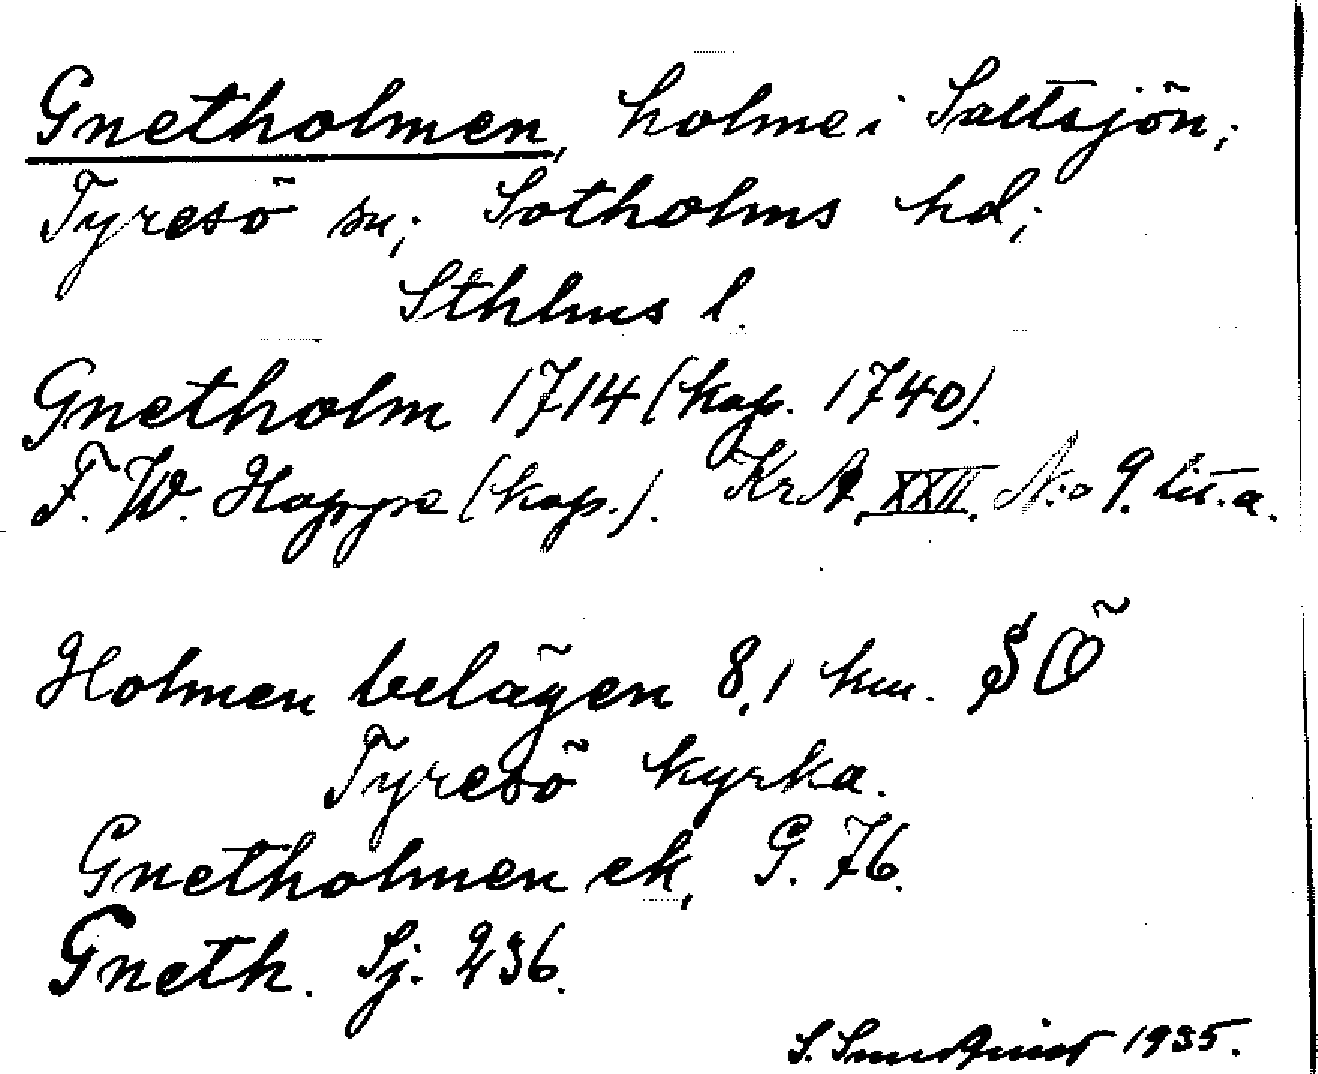 Gnetholmen, holme i Saltsjön;
Tyresö sn; Sotholms hd;
Sthlms l.
Gnetholm 1714 (kop. 1740).
F. W. Hoppe (kop.). KrA. XXII. No 9. lit. a.
Holmen belägen 8,1 km. SÖ
Tyresö kyrka.
Gnetholmen ek, G. 76.
Gneth. Sj. 236.
S. 1935.